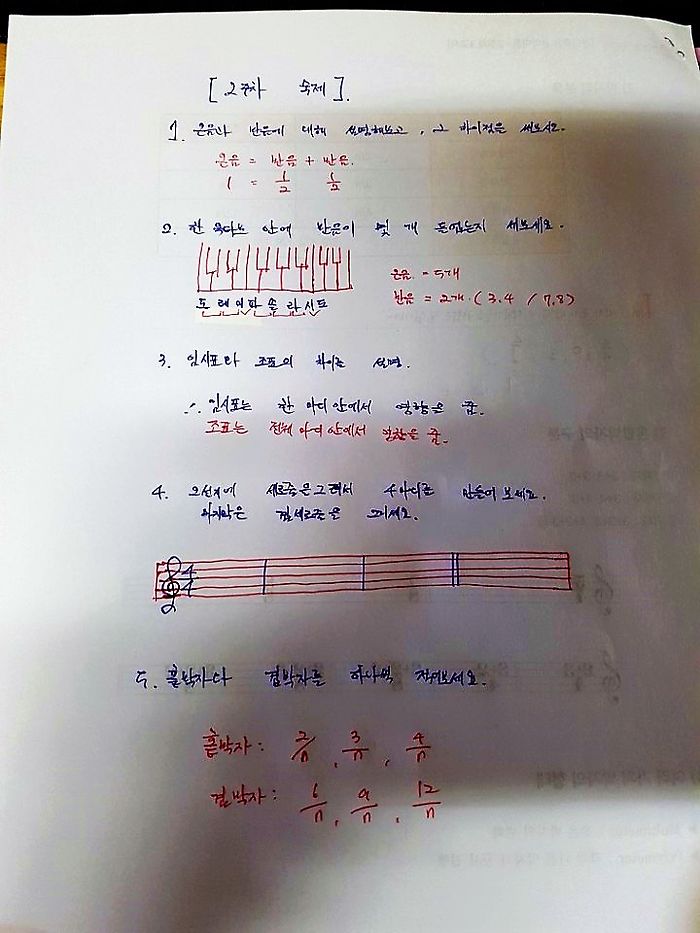 [ 2주차 숙제 ].
1. 온음과 반음에 대해 설명해보고, 그 차이점을 써보시오.
온음 = 반음 + 반음.
1 = 1/2 1/2
2. 한 옥타브 안에 반음이 몇 개 있는지 써보세요.
온음 = 5개
반음 = 2개. (3.4 / 7.8)
도 레 미 파 솔 라 시 도
3. 임시표와 조표의 차이를 설명.
∴ 임시표는 한 마디 안에서 영향을 줌.
조표는 전체 마디 안에서 영향을 줌.
4. 오선지에 세로줄을 그려서 4마디를 만들어 보세요.
마지막은 겹세로줄을 그리세요.
4
4
5. 홑박자와 겹박자를 하나씩 적어보세요.
홑박자: 2/n , 3/n , 4/n
겹박자: 6/n , 9/n , 12/n